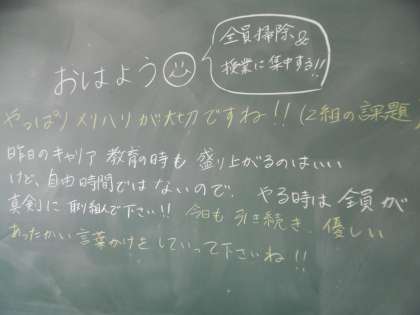 おはよう
全員掃除&
授業に集中する!!
やっぱりメリハリが大切ですね!!(2組の課題)
昨日のキャリア教育の時も盛り上がるのはいい
けど、自由時間ではないので、やる時は全員が
真剣に取り組んで下さい!!今日も引き続き、優しい
あったかい言葉かけをしていって下さいね!!